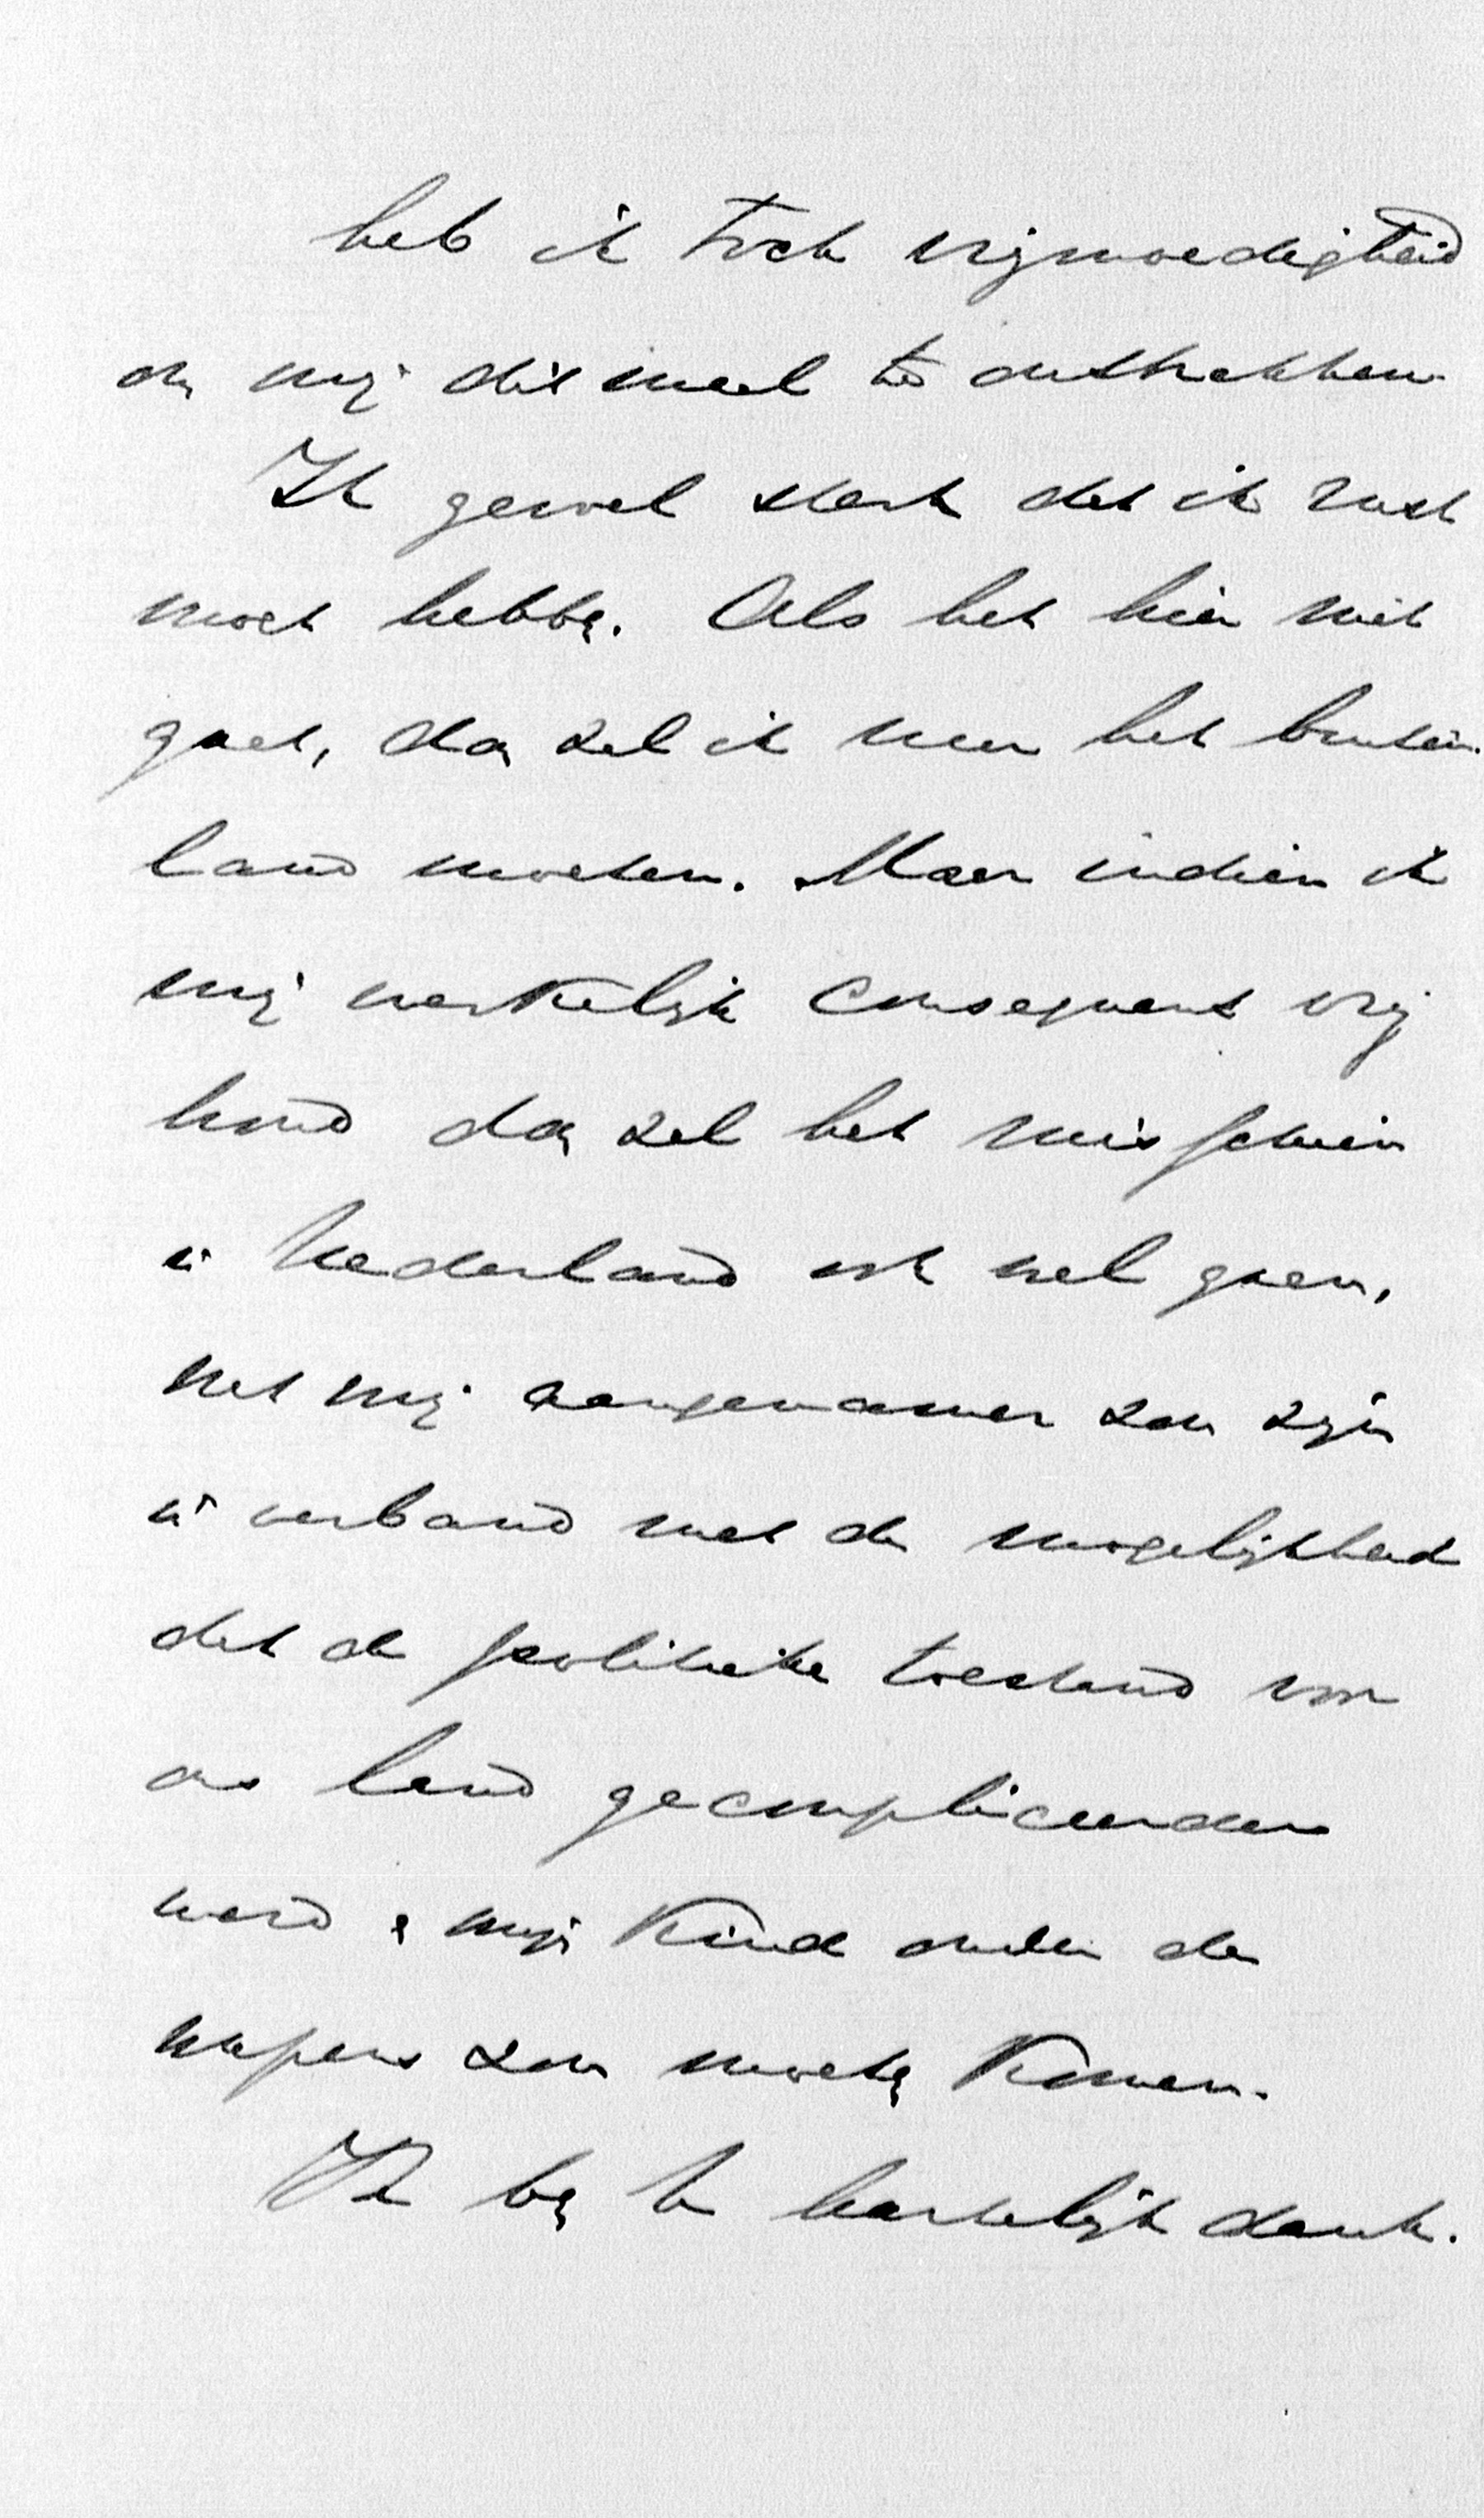 heb ik toch vrijmoedigheid
om mij ditmaal te onttrekken.
Ik gevoel sterk dat ik rust
moet hebben. Als het hier niet
gaat, dan zal ik naar het buiten-
land moeten. Maar indien ik
mij werkelijk consequent vrij
houd dan zal het misschien
in Nederland ook wel gaan,
wat mij aangenamer zou zijn
in verband met de mogelijkheid
dat de politieke toestand voor
ons land gecompliceerder
werd & mijn kind onder de
wapens zou moeten komen.
Ik ben U hartelijk dank.